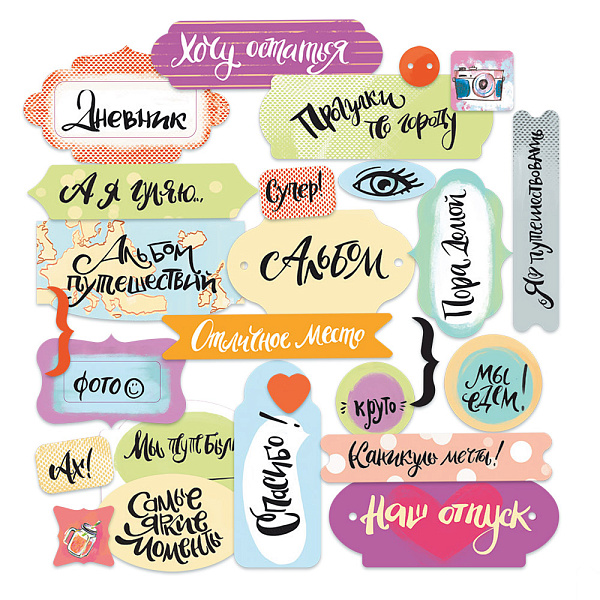 Хочу остаться
Дневник
Прогулки
по городу
А я гуляю...
Супер!
Я путешествовать
Альбом
путешествий
Альбом
Пора домой
Отличное место
фото
круто
мы
едем!
Ах!
Мы тут были
Спасибо!
Каникулы мечты!
Самые
яркие
моменты
Наш отпуск